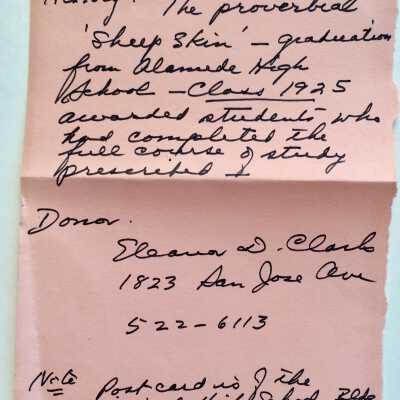 History: The proverbial
'Sheep Skin' – graduation
from Alameda High
School – Class 1925
awarded students who
had completed the
full course of study
prescribed
Donor.
Eleanor D. Clark
1823 San Jose Ave
522-6113
Note Postcard is of the
High School Bldg